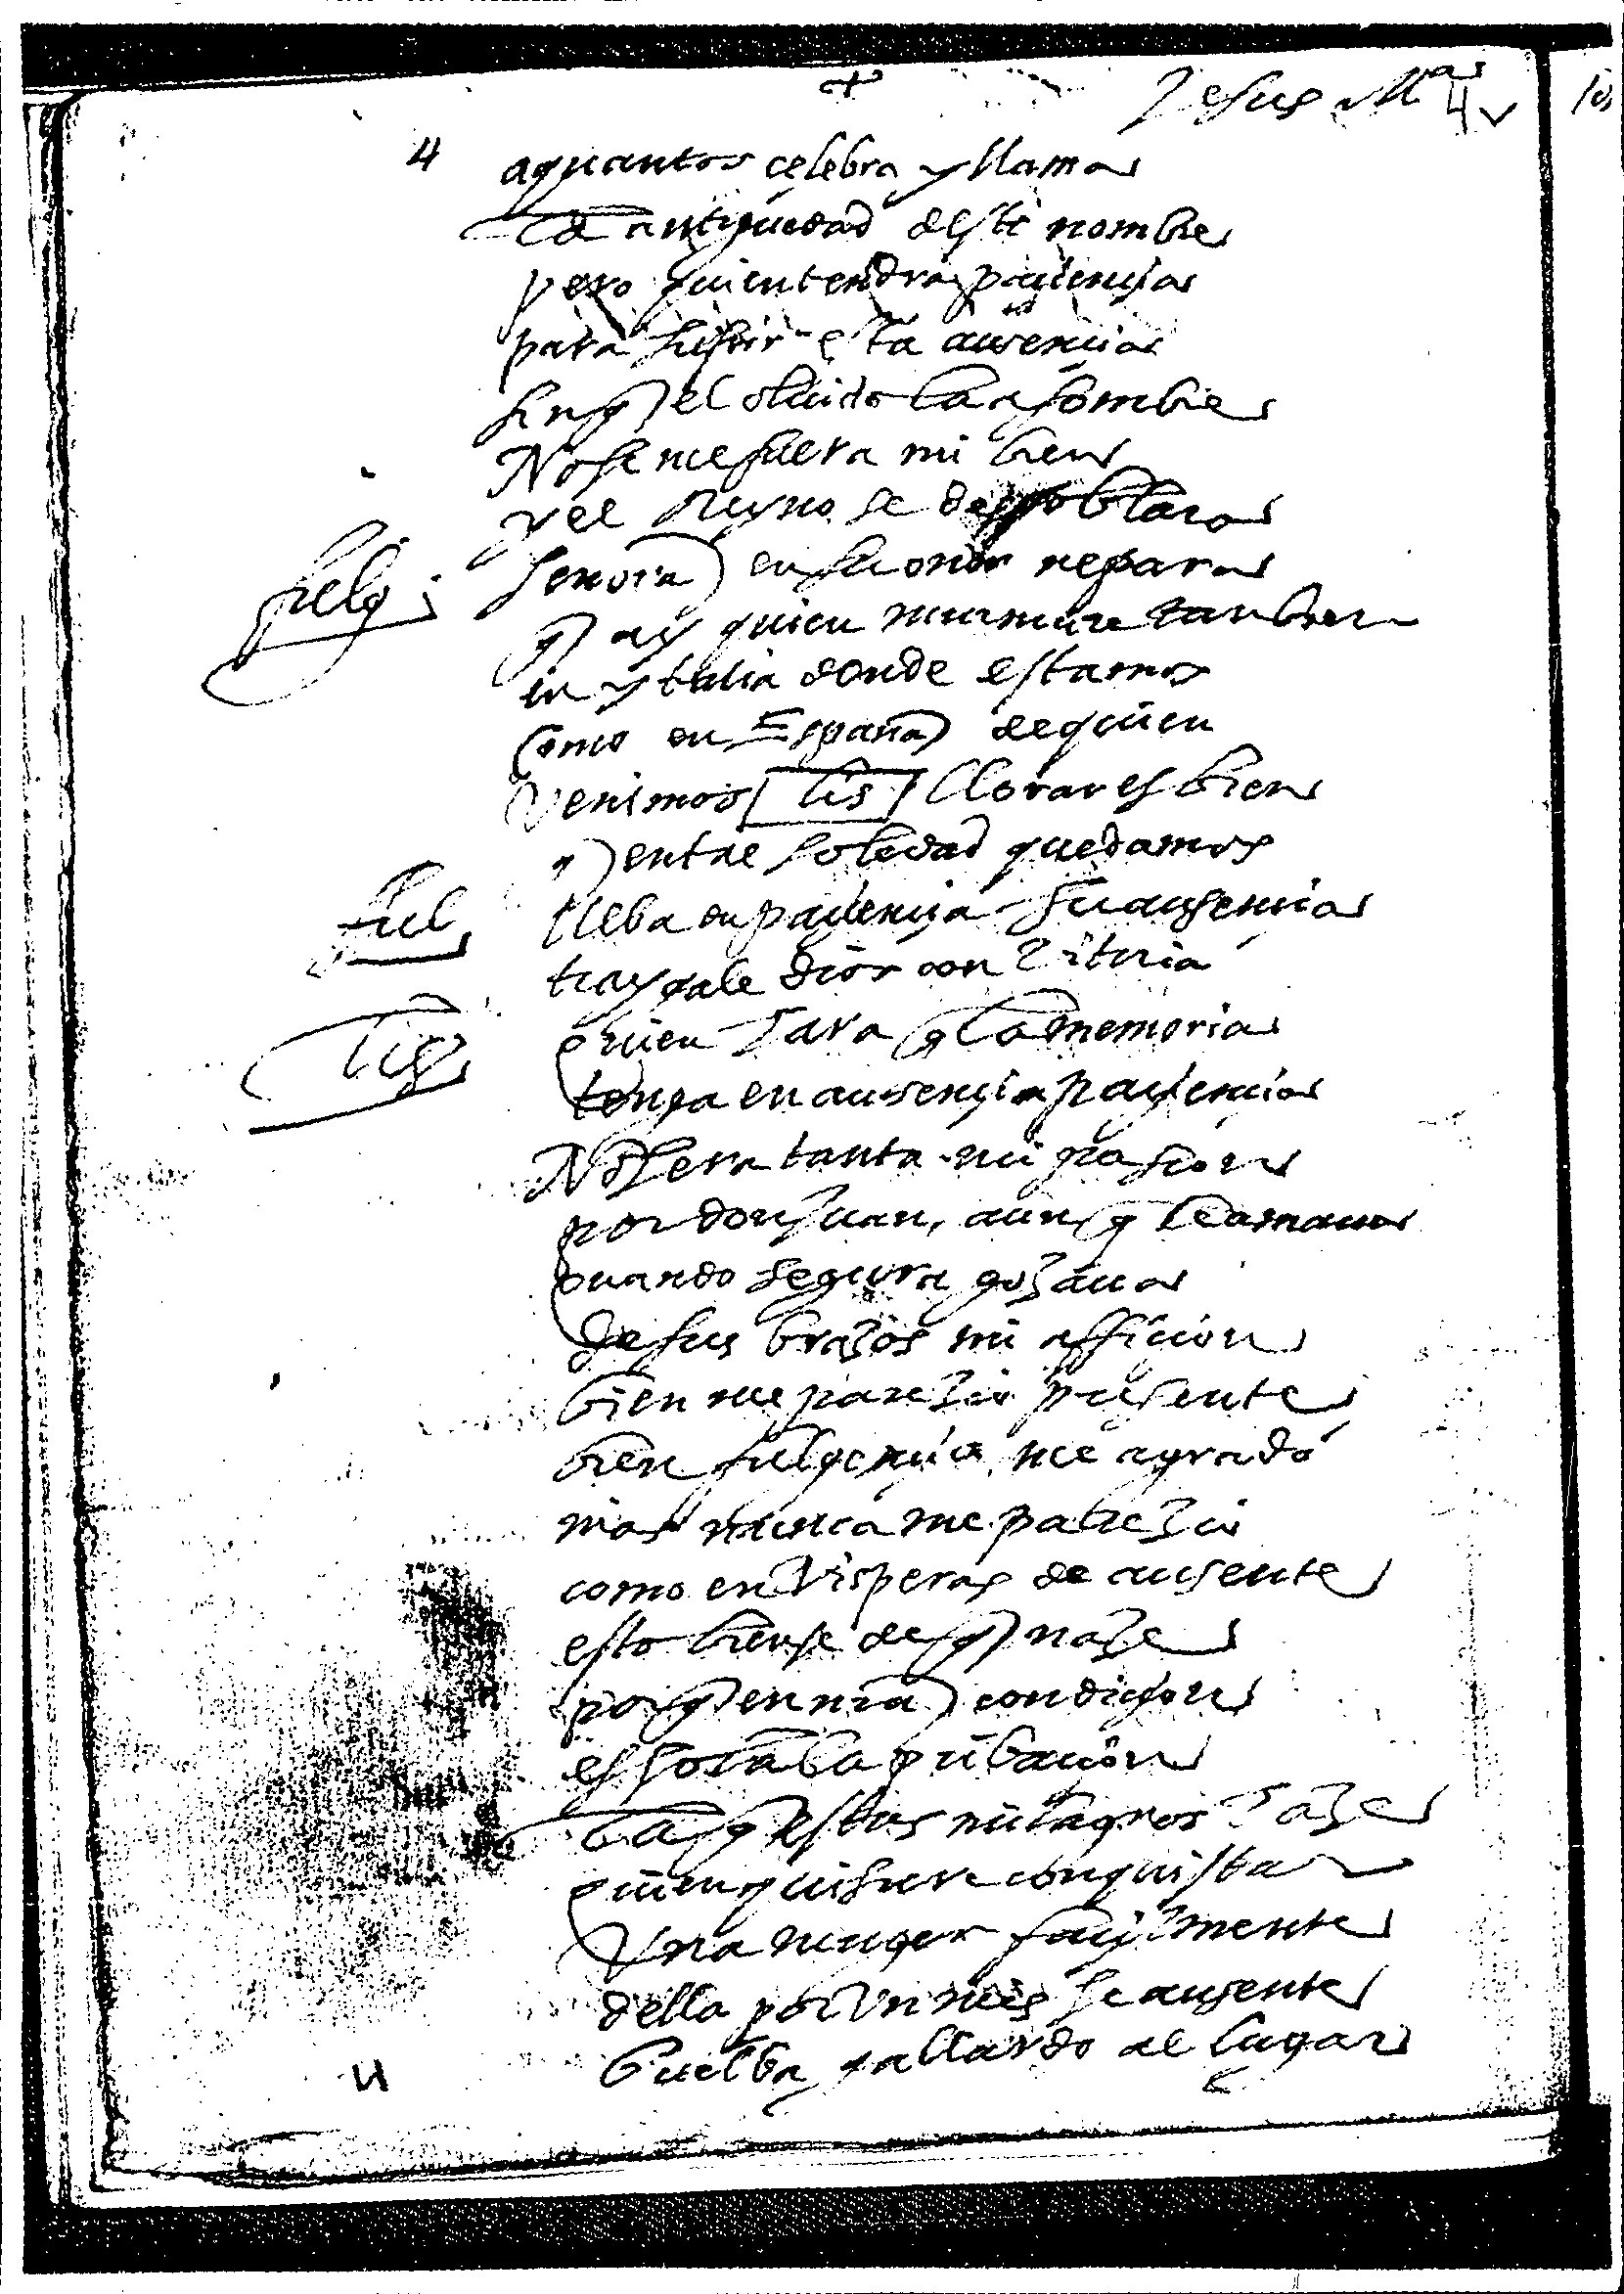 Jesus Mª
4v
4
aquantos çelebra y llama
la antiguedad deste nombre
pero quien tendra paçiençia
para sufrir esta ausencia
sin q el oluido la asombre
No se me fuera mi bien
y el Reyno se despoblara
fulg señora en su onor repara
q ay quien murmure tanbien
en ytalia donde estamos
como en España de quien
venimos lis llorar es bien
q en tal soledad quedamos
ful lleba en paçiençia su ausencia
traygale dios con vitoria
lis quien hara q la memoria
tenga en ausençia paçiencia
No sera tanta mi pasion
por don Juan, aunq le amaua
quando segura gozaua
de sus brazos mi afficion
bien me parezio presente
bien fulgencio me agradó
mas nunca me parezio
como en visperas de ausente
esto bien se de q naze
porq en nra condiçion
es sola la pribacion
la q estos milagros haze
quien quisiere conquistar
vna muger façilmente
della por vn mes se ausente
buelba gallardo al lugar
4